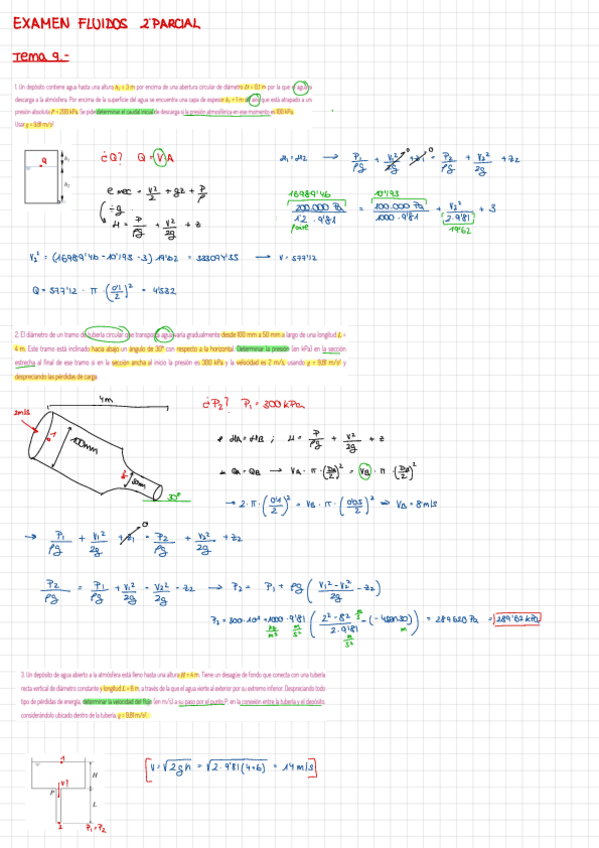 EXAMEN FLUIDOS 2ºPARCIAL
Tema 9.-
1. Un depósito contiene agua hasta una altura h₂ = 3 m por encima de una abertura circular de diámetro D = 0,1 m por la que el agua
descarga a la atmósfera. Por encima de la superficie del agua se encuentra una capa de espesor h₁ = 1 m de aire que está atrapado a un
presión absoluta P = 200 kPa. Se pide determinar el caudal inicial de descarga si la presión atmosférica en ese momento es 100 kPa.
Usar g = 9,81 m/s²
¿Q? Q = V·A
H₁ = H₂ → P₁/ρg + V₁²/2g + z₁ = P₂/ρg + V₂²/2g + z₂
e mec = V²/2 + gz + P/ρ
÷g
H = P/ρg + V²/2g + z
16989'46 10'193
200.000 Pa / 1'2 · 9'81 = 100.000 Pa / 1000 · 9'81 + V₂² / 2·9'81 + 3
19'62
V₂² = (16989'46 - 10'193 - 3) 19'62 = 333074'35 → V = 577'12
Q = 577'12 · π · (0'1/2)² = 4'532
2. El diámetro de un tramo de tubería circular que transporta agua varía gradualmente desde 100 mm a 50 mm a largo de una longitud L =
4 m. Este tramo está inclinado hacia abajo un ángulo de 30º con respecto a la horizontal. Determinar la presión (en kPa) en la sección
estrecha al final de ese tramo si en la sección ancha al inicio la presión es 300 kPa y la velocidad es 2 m/s, usando g = 9,81 m/s² y
despreciando las pérdidas de carga.
4m
2m/s
1
100mm
50mm
30º
¿P₂? P₁ = 300 kPa
HA = HB ; H = P/ρg + V²/2g + z
QA = QB → VA · π · (DA/2)² = VB · π (DB/2)²
→ 2·π·(0'1/2)² = VB · π · (0'05/2)² ⇒ VB = 8 m/s
→ P₁/ρg + V₁²/2g + z₁ = P₂/ρg + V₂²/2g + z₂
P₂/ρg = P₁/ρg + V₁²/2g - V₂²/2g - z₂ → P₂ = P₁ + ρg (V₁² - V₂² / 2g - z₂)
P₂ = 300·10³ + 1000 · 9'81 (2² - 8² / 2·9'81 - (-4sen30)) = 289620 Pa = 289'62 kPa
kg/m³ m/s² m/s² m
3. Un depósito de agua abierto a la atmósfera está lleno hasta una altura H = 4 m. Tiene un desagüe de fondo que conecta con una tubería
recta vertical de diámetro constante y longitud L = 6 m, a través de la que el agua vierte al exterior por su extremo inferior. Despreciando todo
tipo de pérdidas de energía, determinar la velocidad del flujo (en m/s) a su paso por el punto P, en la conexión entre la tubería y el depósito,
considerándolo ubicado dentro de la tubería. g = 9,81 m/s².
1
V?
P
H
L
2
P₁ = P₂
V = √2gh = √2·9'81(4+6) = 14 m/s